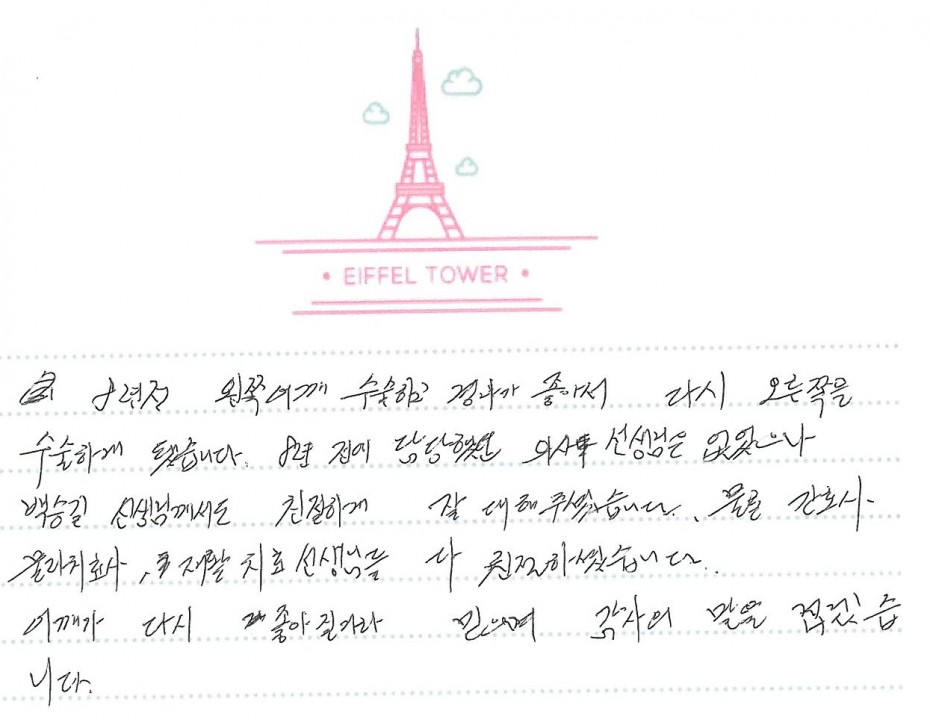 • EIFFEL TOWER •
8년전 왼쪽어깨 수술하고 경과가 좋아서 다시 오른쪽을
수술하게 됐습니다. 8년 전에 담당했던 의사 선생님은 없었으나
백승길 선생님께서도 친절하게 잘 대해주셨습니다. 물론 간호사.
물리치료사, 재활 치료 선생님들 다 친절하셨습니다..
어깨가 다시 좋아질거라 믿으며 감사의 말을 적겠습
니다.